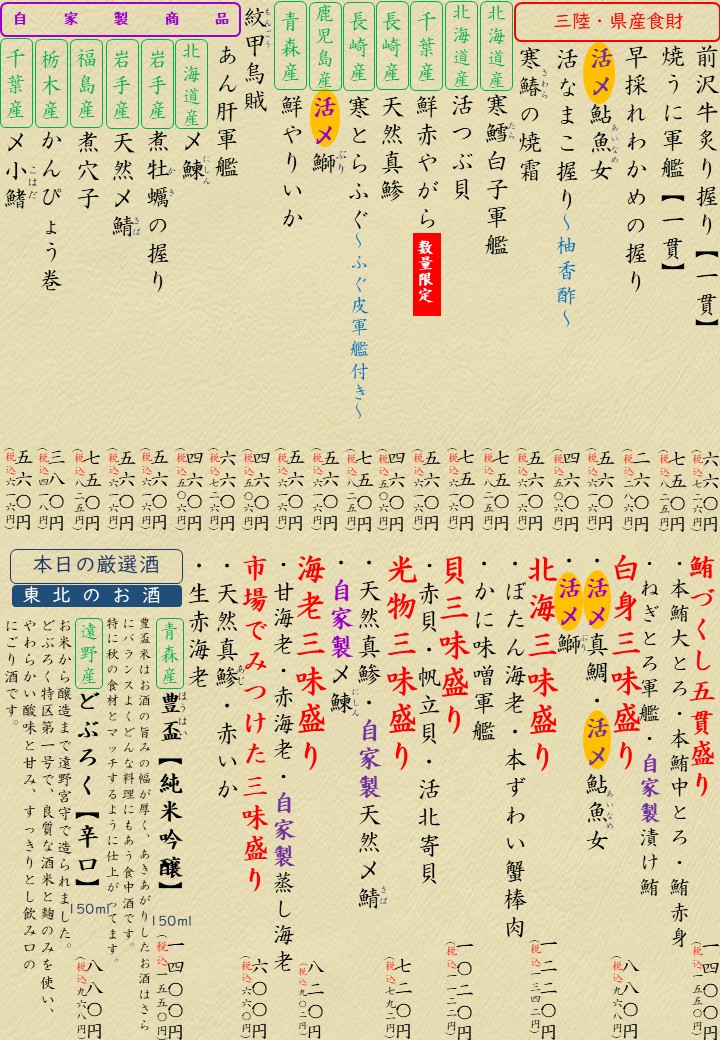 三陸・県産食財
前沢牛炙り握り【一貫】 六六〇円(税込七二六円)
焼うに軍艦【一貫】 七五〇円(税込八二五円)
早採れわかめの握り 二六〇円(税込二八六円)
活〆鮎魚女 あいなめ 五六〇円(税込六一六円)
活なまこ握り～柚香酢～ 四六〇円(税込五〇六円)
寒鰆の焼霜 さわら 五六〇円(税込六一六円)
北海道産 寒鱈白子軍艦 たら 七五〇円(税込八二五円)
北海道産 活つぶ貝 五六〇円(税込六一六円)
千葉産 鮮赤やがら 数量限定 五六〇円(税込六一六円)
長崎産 天然真鯵 四六〇円(税込五〇六円)
長崎産 寒とらふぐ～ふぐ皮軍艦付き～ 七五〇円(税込八二五円)
鹿児島産 活〆鰤 ぶり 五六〇円(税込六一六円)
青森産 鮮やりいか 五六〇円(税込六一六円)
紋甲烏賊 もんごう 四六〇円(税込五〇六円)
自家製商品
あん肝軍艦 六六〇円(税込七二六円)
北海道産 〆鰊 にしん 四六〇円(税込五〇六円)
岩手産 煮牡蠣の握り かき 五六〇円(税込六一六円)
岩手産 天然〆鯖 さば 五六〇円(税込六一六円)
福島産 煮穴子 七五〇円(税込八二五円)
栃木産 かんぴょう巻 三八〇円(税込四一八円)
千葉産 〆小鰭 こはだ 五六〇円(税込六一六円)
鮪づくし五貫盛り
・本鮪大とろ・本鮪中とろ・鮪赤身 一四〇〇円(税込一五四〇円)
・ねぎとろ軍艦・自家製漬け鮪
白身三味盛り 八八〇円(税込九六八円)
・活〆真鯛・活〆鮎魚女 あいなめ
・活〆鰤 ぶり
北海三味盛り 一二二〇円(税込一三四二円)
・ぼたん海老・本ずわい蟹棒肉
・かに味噌軍艦
貝三味盛り 一〇二〇円(税込一一二二円)
・赤貝・帆立貝・活北寄貝
光物三味盛り 七二〇円(税込七九二円)
・天然真鯵・自家製天然〆鯖 さば
・自家製〆鰊 にしん
海老三味盛り 八二〇円(税込九〇二円)
・甘海老・赤海老・自家製蒸し海老
市場でみつけた三味盛り 六〇〇円(税込六六〇円)
・天然真鯵・赤いか あじ
・生赤海老
本日の厳選酒
東北のお酒
青森産 豊盃【純米吟醸】 ほうはい 150ml 一四〇〇円(税込一五四〇円)
豊盃米はお酒の旨みの幅が厚く、あきあがりしたお酒はさら
にバランスよくどんな料理にもあう食中酒です。
特に秋の食材とマッチするように仕上がってます。
遠野産 どぶろく【辛口】 150ml 八八〇円(税込九六八円)
お米から醸造まで遠野宮守で造られました。
どぶろく特区第一号で、良質な酒米と麹のみを使い、
やわらかい酸味と甘み、すっきりとし飲み口の
にごり酒です。